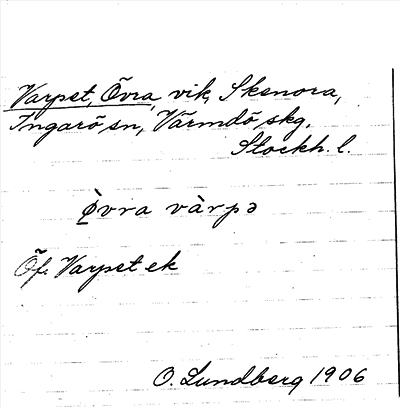 Varpet, Övra, vik, Skenora,
Ingarö sn, Värmdö skg,
Stockh. l.
ø̀vra vàrpə
Öf. Varpet ek
O. Lundberg 1906